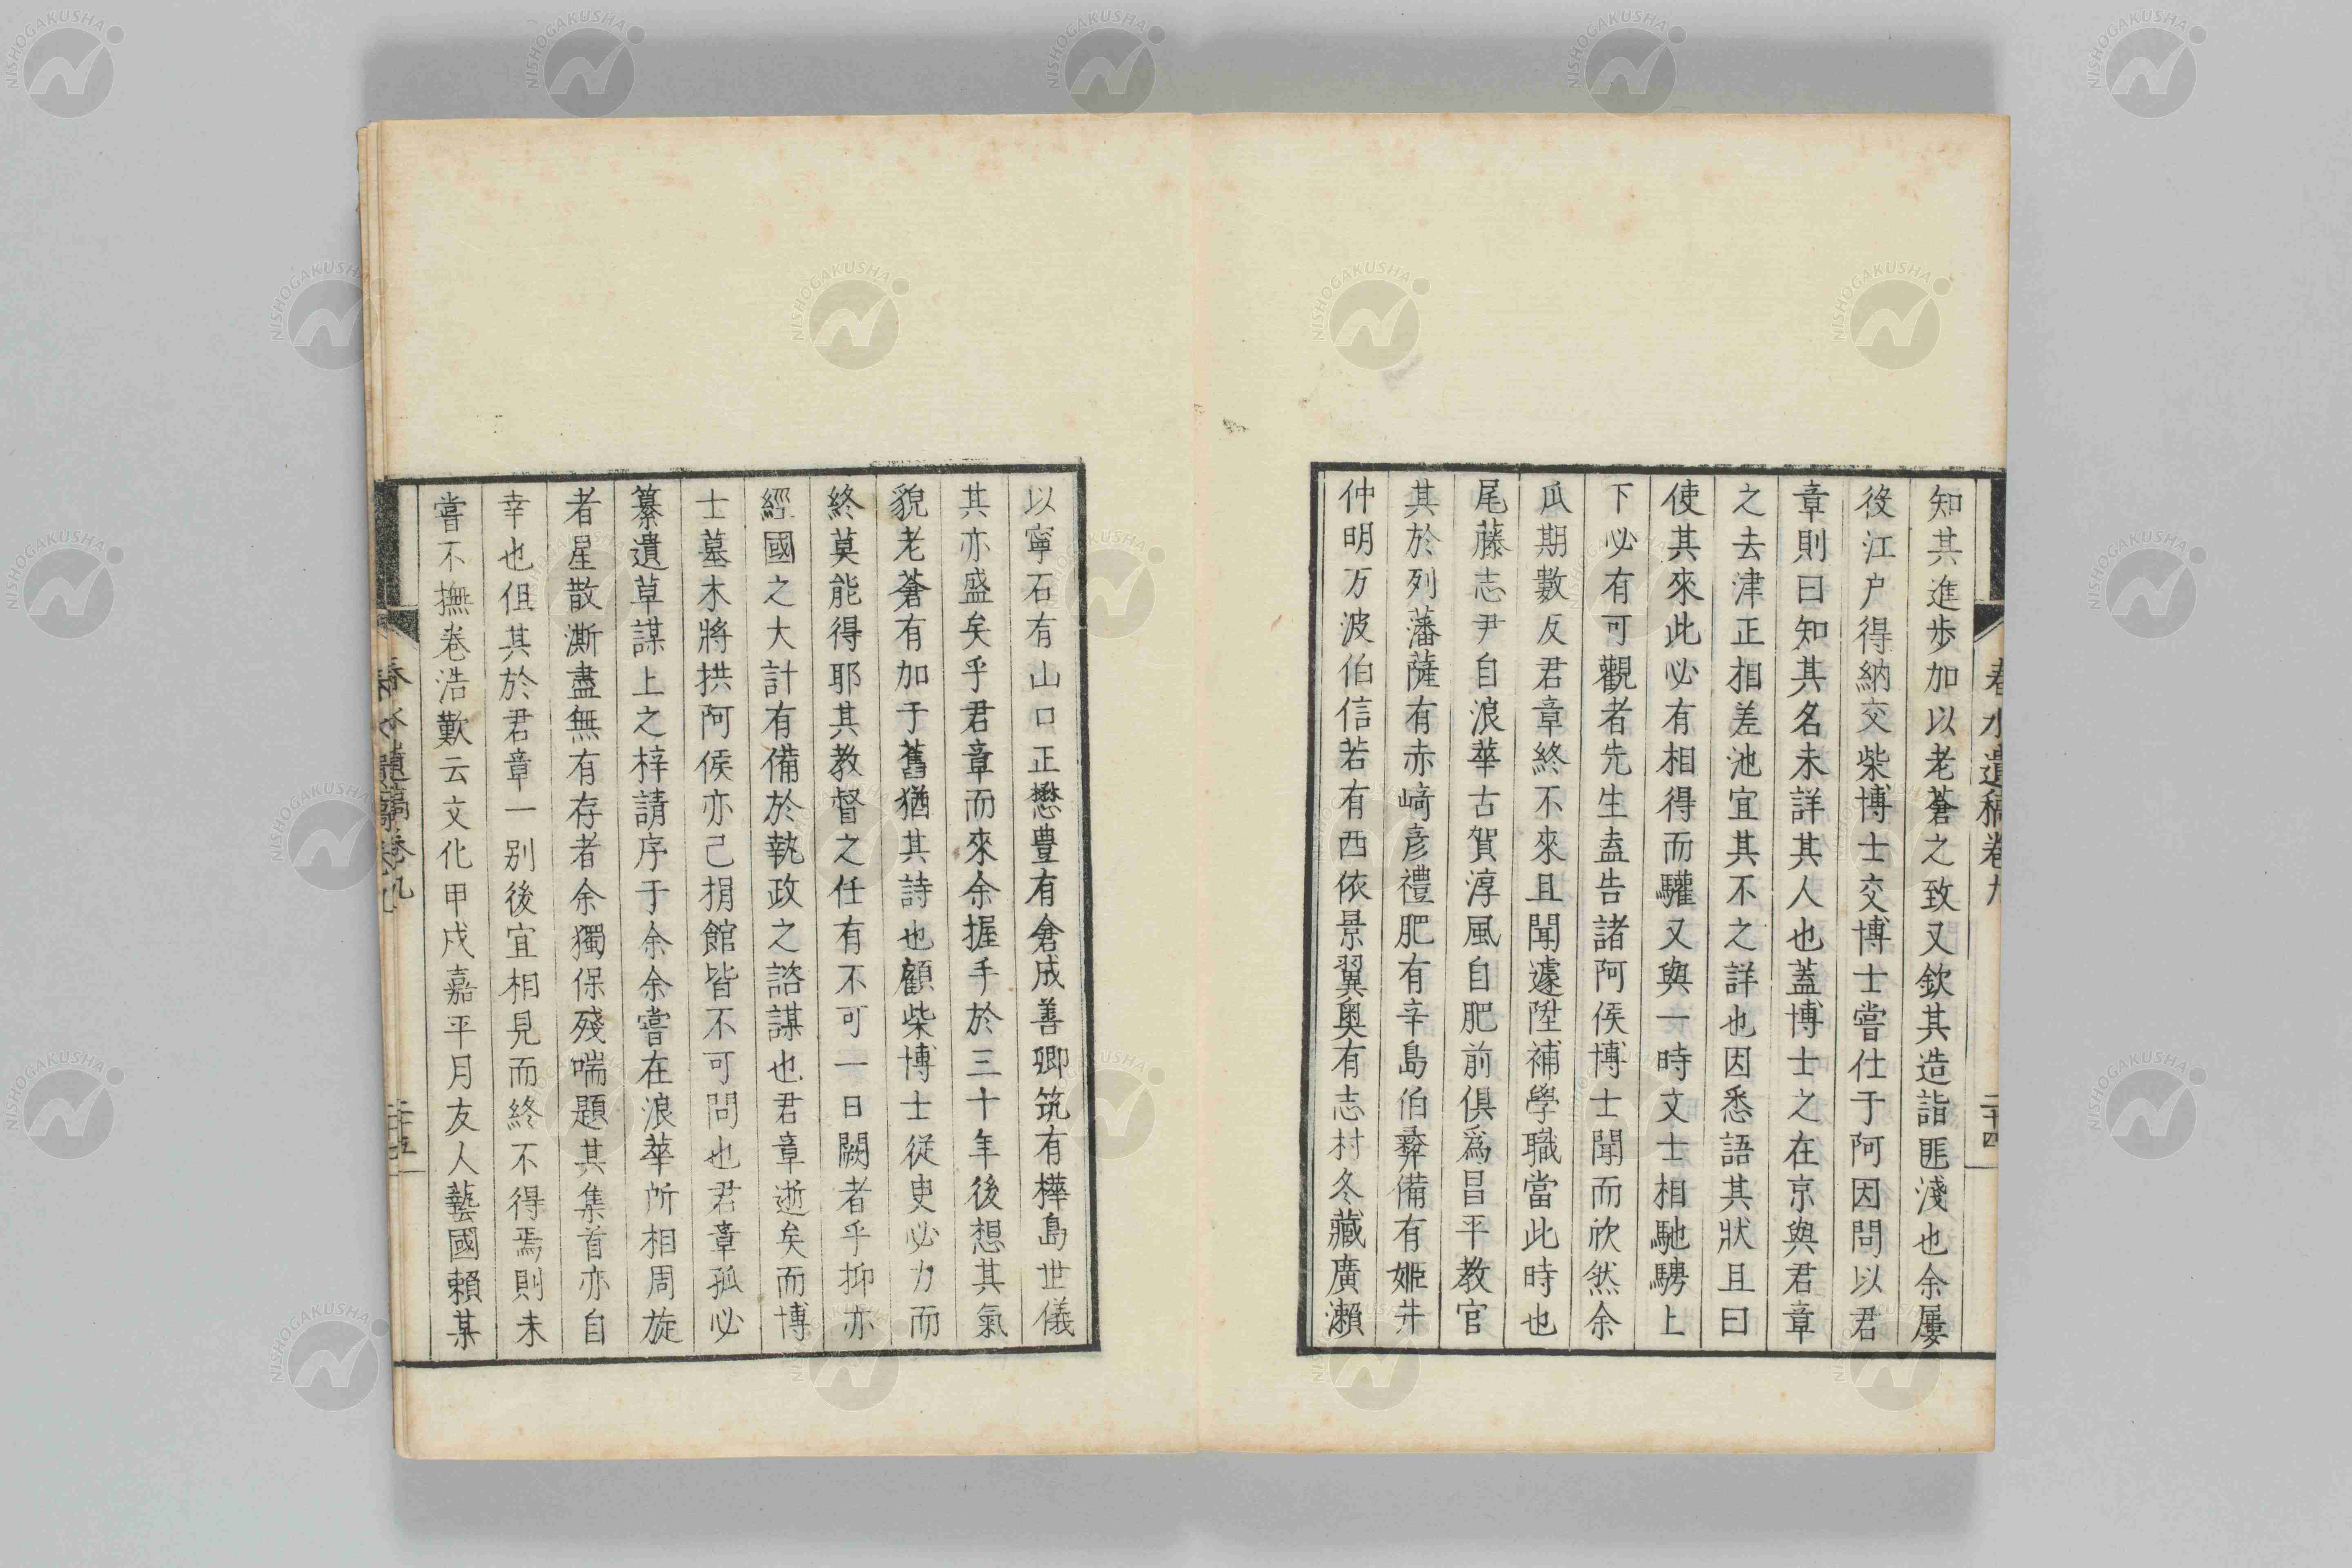 春水遺稿卷九
二十四
知其進歩加以老蒼之致又欽其造詣匪淺也余屢
役江户得納交柴博士交博士嘗仕于阿因問以君
章則曰知其名未詳其人也蓋博士之在京與君章
之去津正相差池宜其不之詳也因悉語其狀且曰
使其來此必有相得而驩又與一時文士相馳騁上
下必有可觀者先生盍告諸阿侯博士聞而欣然余
瓜期數反君章終不來且聞遽陞補學職當此時也
尾藤志尹自浪華古賀淳風自肥前俱爲昌平教官
其於列藩薩有赤﨑彦禮肥有辛島伯彝備有姬井
仲明万波伯信若有西依景翼奥有志村冬藏廣瀬
以寧石有山口正懋豊有倉成善卿筑有樺島世儀
其亦盛矣乎君章而來余握手於三十年後想其氣
貌老蒼有加于舊猶其詩也顧柴博士從臾必力而
終莫能得耶其教督之任有不可一日闕者乎抑亦
經國之大計有備於執政之諮謀也君章逝矣而博
士墓木將拱阿侯亦己捐館皆不可問也君章孤必
纂遺草謀上之梓請序于余余嘗在浪華所相周旋
者星散澌盡無有存者余獨保殘喘題其集首亦自
幸也但其於君章一别後宜相見而終不得焉則未
嘗不撫卷浩歎云文化甲戌嘉平月友人藝國賴某
春水遺稿卷九
二十五